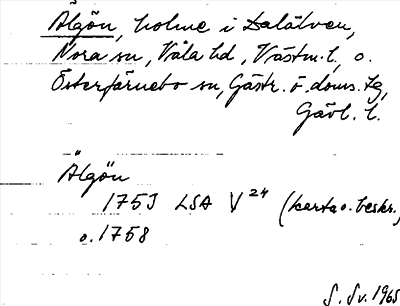 Älgön, holme i Dalälven,
Nora sn, Våla hd, Västm. l., o.
Österfärnebo sn, Gästr. ö. doms. tg,
Gävl. l.
Älgön
1753 LSA V 24 (karta o. beskr.)
o. 1758
S. Sv. 1965